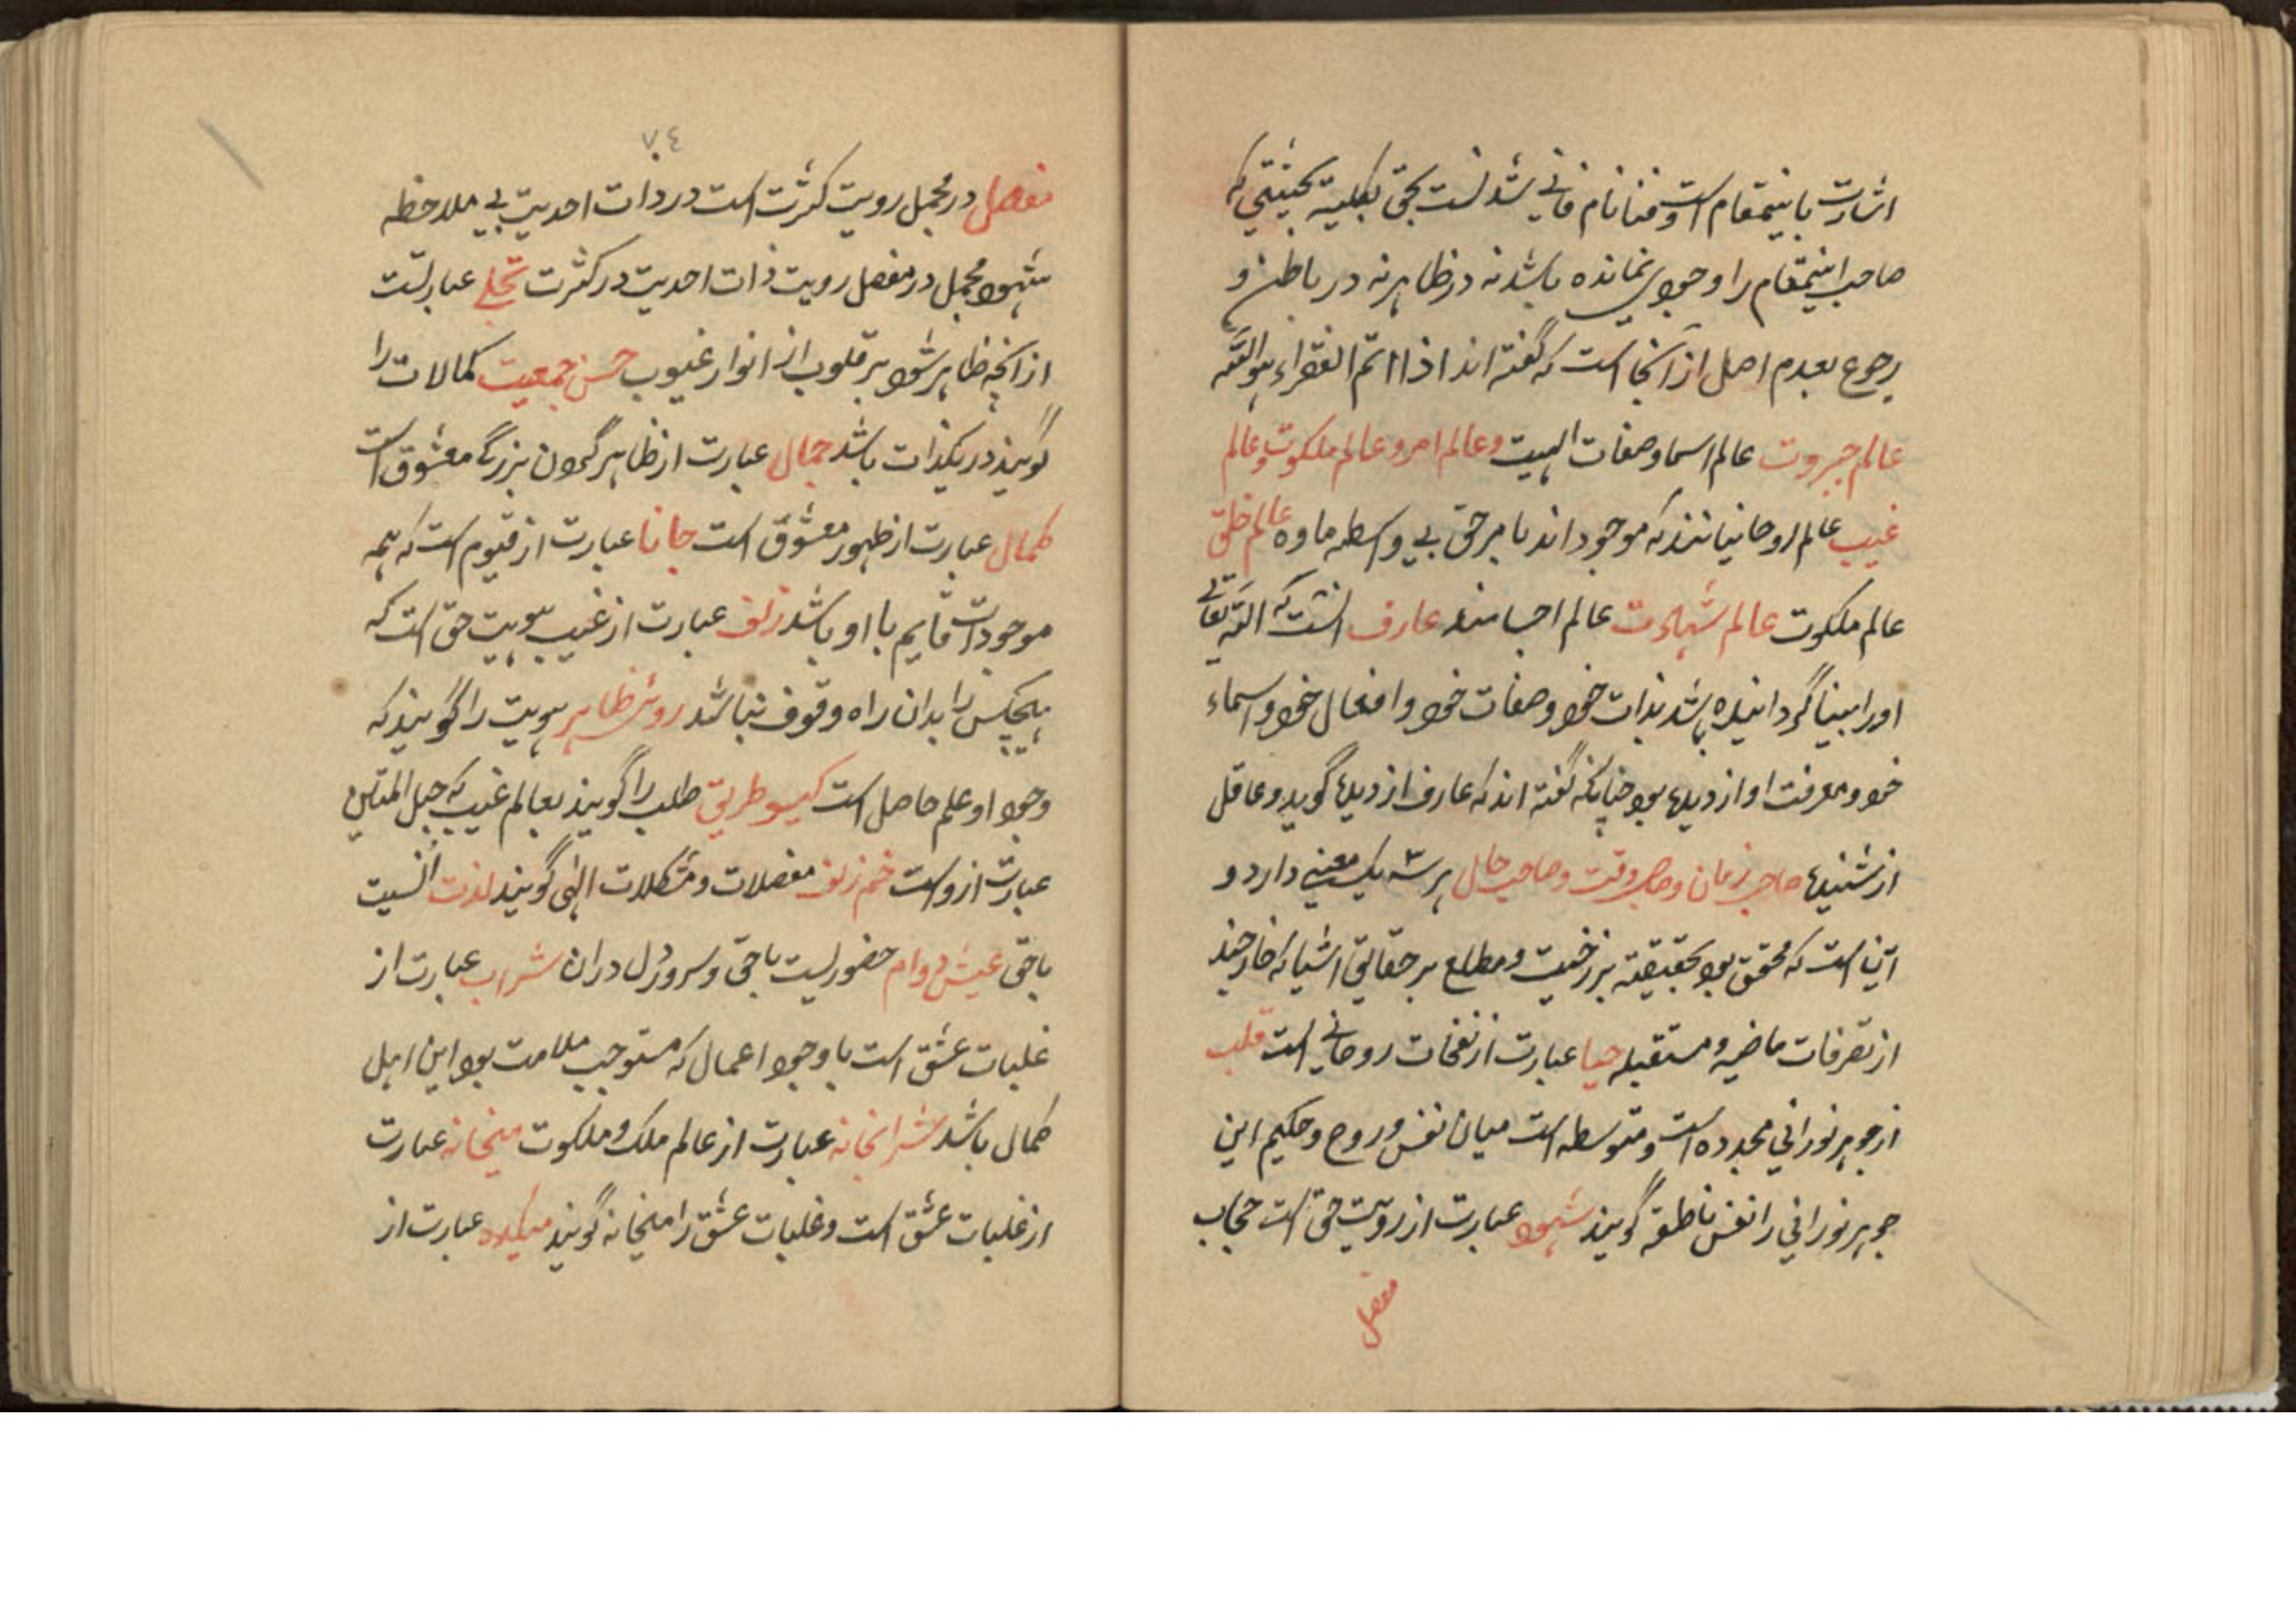 اشارت باینمقام است و فنا نام فانی شدنست بحق بکلیه بحیثیتی که
صاحب اینمقام را وجودی نمانده باشد نه در ظاهر نه در باطن و
رجوع بعدم اصل از آنجا است که گفته اند اذا اتم الفقراء هو الله
عالم جبروت عالم اسما و صفات الهیت و عالم امر و عالم ملکوت و عالم
غیب عالم روحانیانند که موجود اند بامر حق بی واسطه ماده عالم خلق
عالم ملکوت عالم شهادت عالم اجسامند عارف انست که الله تعالی
اورا بینا گردانیده باشد بذات خود و صفات خود و افعال خود و اسماء
خود و معرفت او از دیده بود چنانکه گفته اند که عارف از دیده گوید و عاقل
از شنیده صاحب زمان و صاحب وقت و صاحب حال هر سه یک معنی دارد و
آن است که محقق بود بحقیقته برزخیت و مطلع بر حقایق اشیا که خارجند
از تصرفات ماضیه و مستقبله حیا عبارت از نفخات روحانی است قلب
از جوهر نورانی مجرده است و متوسطه است میان نفس و روح و حکیم این
جوهر نورانی را نفس ناطقه گویند شهود عبارت از رویت حق است حجاب
مفصل
٧٠٤
مفصل در مجمل رویت کثرت است در ذات احدیت بی ملاحظه
شهود مجمل در مفصل رویت ذات احدیت در کثرت تجلی عبارتست
از انچه ظاهر شود بر قلوب از انوار غیوب حسن جمعیت کمالات را
گویند در یکذات باشد جمال عبارت از ظاهر کردن بزرگی معشوق است
کمال عبارت از ظهور معشوق است جانا عبارت از قیوم است که همه
موجودات قایم با او باشد زلف عبارت از غیب هویت حق است که
هیچکس را بدان راه وقوف نباشد روی ظاهر هویت را گویند که
وجود او علم حاصل است کیسو طریق طلب را گویند بعالم غیب که حبل المتین
عبارت از و است خم زلف معضلات و مشکلات الهی گویند لذت انسیت
باحق عیش دوام حضوریست باحق و سرور دل دران شراب عبارت از
غلبات عشق است با وجود اعمال که مستوجب ملامت بود این اهل
کمال باشد شرابخانه عبارت از عالم ملک و ملکوت میخانه عبارت
از غلبات عشق است و غلبات عشق را میخانه گویند میکده عبارت از